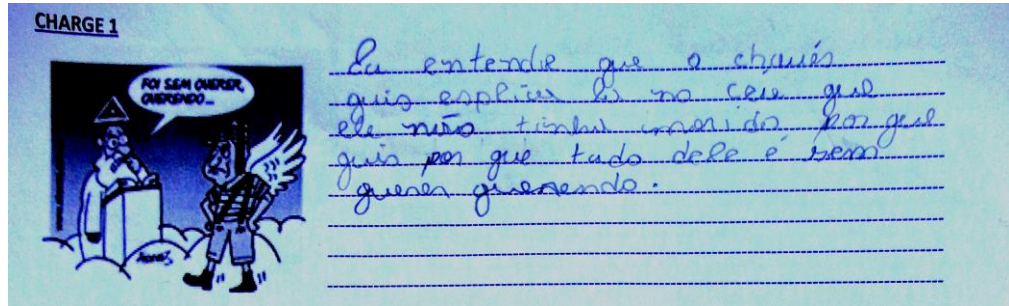 CHARGE 1
FOI SEM QUERER,
QUERENDO...
Eu entende que o chavés
quis esplicar lá no ceu que
ele não tinha morrido porque
quis por que tudo dele é sem
querer querendo.